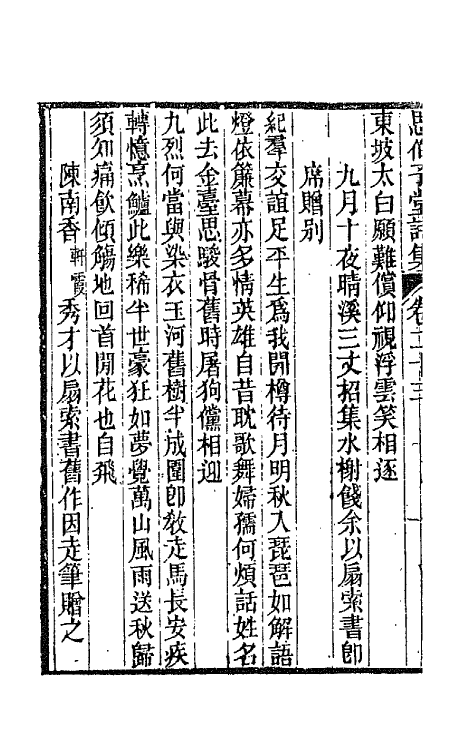 思伯子堂詩集 卷二十三
東坡太白願難償仰視浮雲笑相逐
九月十夜晴溪三丈招集水榭餞余以扇索書卽
席贈別
紀羣交誼足平生爲我開樽待月明秋入琵琶如解語
燈依簾幕亦多情英雄自昔耽歌舞婦孺何煩話姓名
此去金臺思駿骨舊時屠狗儻相迎
九烈何當與染衣玉河舊樹半成圍卽教走馬長安疾
轉憶烹鱸此樂稀半世豪狂如夢覺萬山風雨送秋歸
須知痛飮傾觴地回首開花也自飛
陳南香軒霞秀才以扇索書舊作因走筆贈之